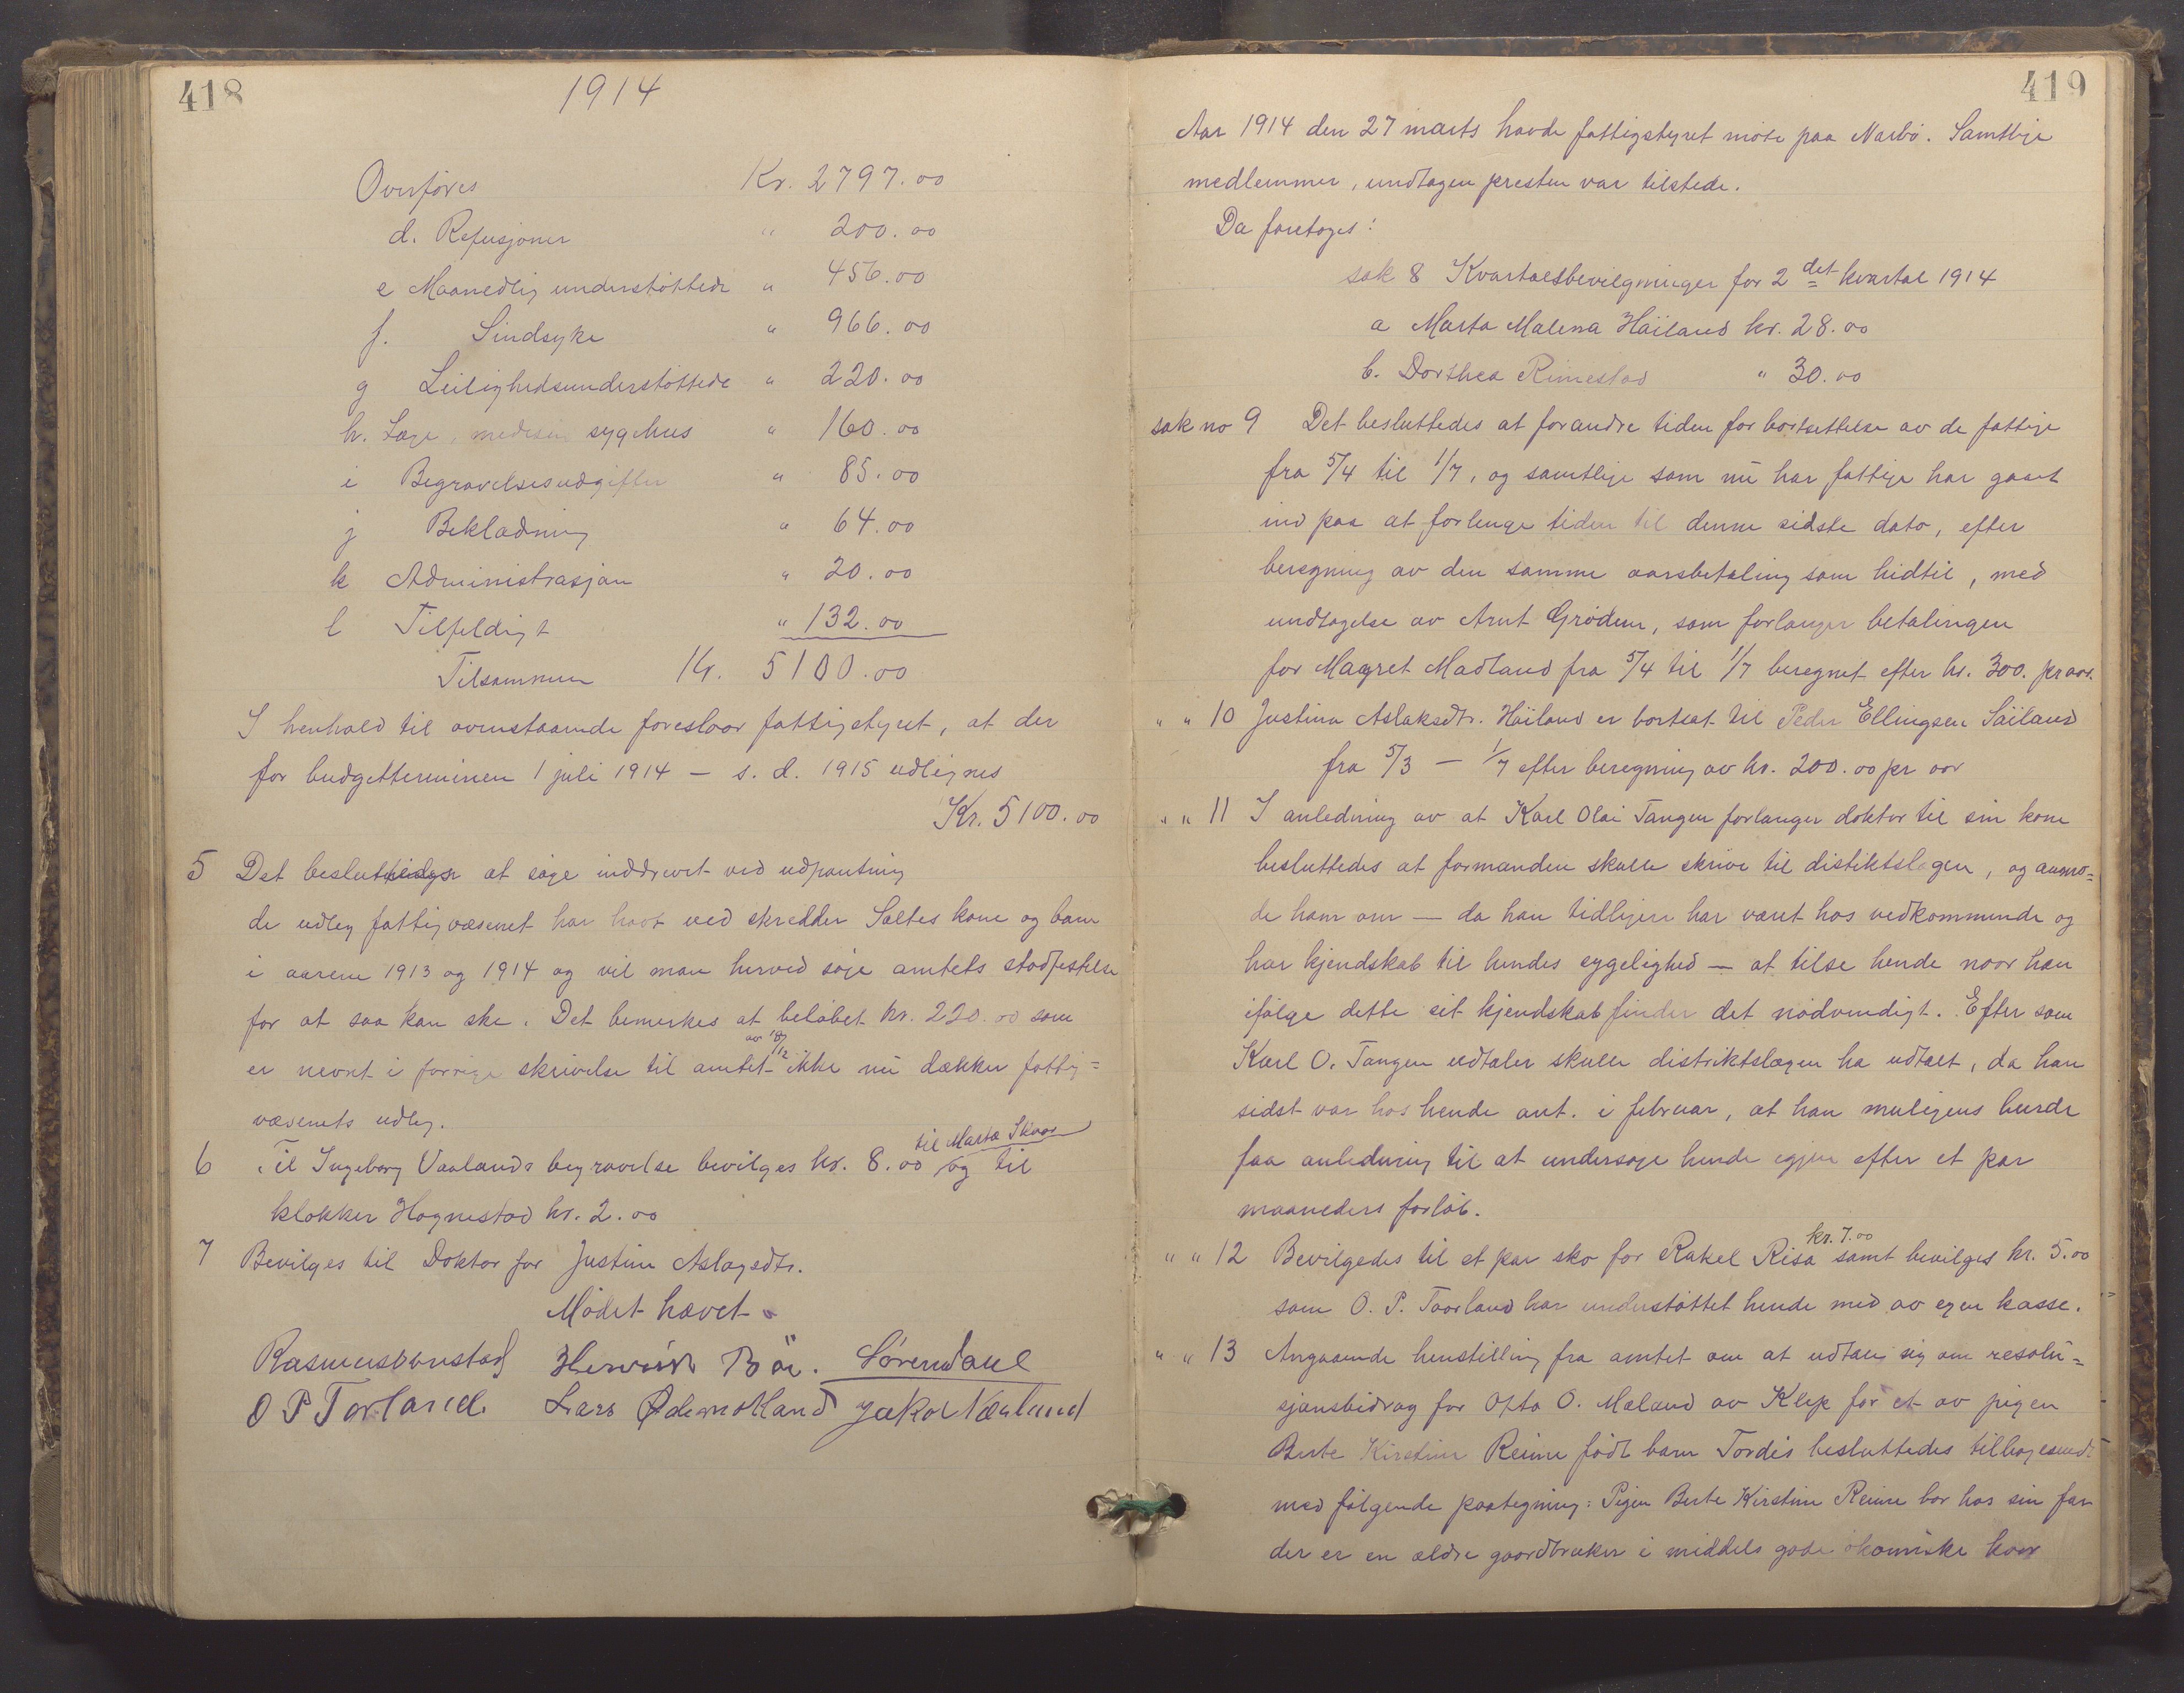 418
1914
Overføres Kr. 2797.00
d. Refusjoner " 200.00
e Maanedlig understøttede " 456.00
f. Sindsyke " 966.00
g Leilighedsunderstøttede " 220.00
h. Læge, medisin sygehus " 160.00
i Begravelsesudgifter " 85.00
j Beklædning " 64.00
k Administrasjon " 20.00
l Tilfeldigt " 132.00
Tilsammen Kr. 5100.00
I henhold til ovenstaaende foreslaar fattigstyret, at der
for budgetterminen 1 juli 1914 – s. d. 1915 udlignes
Kr. 5100.00
5 Det besluttedes at søge inddrevet ved udpantning
de udlæg fattigvæsenet har havt ved skredder Saltes kone og barn
i aarene 1913 og 1914 og vil man herved søge amtets stadfestelse
for at saa kan ske. Det bemerkes at beløbet kr. 220.00 som
er nevnt i forrige skrivelse til amtet av 18/12 ikke nu dækker fattig=
væsenets udlæg.
til Marta Skaar
6 Til Ingeborg Vaalands begravelse bevilges kr. 8.00 og til
klokker Hognestad kr. 2.00
7 Bevilges til Doktor for Justine Aslagsdtr.
Mødet hævet.
Rasmus Hernrik Bøe. Sørendahl
O P Torland. Lars Ødemotland Jakob Nærland
419
Aar 1914 den 27 marts havde fattigstyret møte paa Narbø. Samtlige
medlemmer, undtagen presten var tilstede.
Da foretoges:
sak 8 Kvartalsbevilgninger for 2det kvartal 1914
a Marta Malena Häiland kr. 28.00
b. Dorthea Rimestad " 30.00
sak no 9 Det besluttedes at forandre tiden for bortsettelse av de fattige
fra 5/4 til 1/7, og samtlige som nu har fattige har gaaet
ind paa at forlenge tiden til denne sidste dato, efter
beregning av den samme aarsbetaling som hidtil, med
undtagelse av Arnt Grødem, som forlanger betalingen
for Magret Madland fra 5/4 til 1/7 beregnet efter kr. 300. pr aar.
" " 10 Justina Aslaksdtr. Häiland er bortsat til Peder Ellingsen Säiland
fra 5/3 – 1/7 efter beregning av kr. 200.00 pr aar
" " 11 I anledning av at Karl Olai Tangen forlanger doktor til sin kone
besluttedes at formanden skulle skrive til distiktslægen, og anmo=
de ham om — da han tidligere har været hos vedkommende og
har kjendskab til hendes sygelighed — at tilse hende naar han
ifølge dette sit kjendskab finder det nødvendigt. Efter som
Karl O. Tangen udtaler skulle distriktslægen ha udtalt, da han
sidst var hos hende ant. i februar, at han muligens burde
faa anledning til at undersøge hende igjen efter et par
maaneders forløb.
kr. 7.00
" " 12 Bevilgedes til et par sko for Rakel Risa samt bevilges kr. 5.00
som O. P. Taarland har understøttet hende med av egen kasse.
" " 13 Angaaende henstilling fra amtet om at udtale sig om resolu=
sjonsbidrag for Otto O. Mæland av Klep for et av pigen
Berte Kirstine Reime født barn Tordis besluttedes tilbagesendt
med følgende paategning: Pigen Berte Kirstine Reime bor hos sin far
der er en ældre gaardbruker i middels gode økomiske kaar